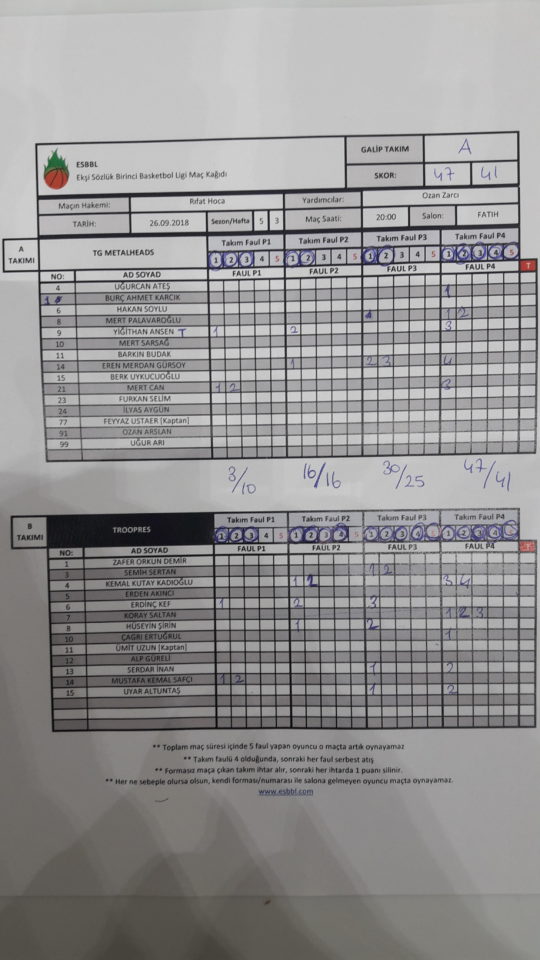 ESBBL
Ekşi Sözlük Birinci Basketbol Ligi Maç Kağıdı
GALİP TAKIM A
SKOR: 47 41
Maçın Hakemi: Rıfat Hoca Yardımcılar: Ozan Zarcı
TARİH: 26.09.2018 Sezon/Hafta 5 3 Maç Saati: 20:00 Salon: FATIH
A TAKIMI TG METALHEADS Takım Faul P1 Takım Faul P2 Takım Faul P3 Takım Faul P4
1 2 3 4 5 1 2 3 4 5 1 2 3 4 5 1 2 3 4 5
NO: AD SOYAD FAUL P1 FAUL P2 FAUL P3 FAUL P4 T
4 UĞURCAN ATEŞ 1
BURÇ AHMET KARCIK
6 HAKAN SOYLU 1 2
8 MERT PALAVAROĞLU 3
9 YİĞİTHAN ANSEN T 1 2
10 MERT SARSAĞ
11 BARKIN BUDAK
14 EREN MERDAN GÜRSOY 1 2 3 4
15 BERK UYKUCUOĞLU
21 MERT CAN 1 2 3
23 FURKAN SELİM
24 İLYAS AYGÜN
77 FEYYAZ USTAER [Kaptan]
91 OZAN ARSLAN
99 UĞUR ARI
3/10 16/16 30/25 47/41
B TAKIMI TROOPRES Takım Faul P1 Takım Faul P2 Takım Faul P3 Takım Faul P4
1 2 3 4 5 1 2 3 4 5 1 2 3 4 1 2 3 4
NO: AD SOYAD FAUL P1 FAUL P2 FAUL P3 FAUL P4
1 ZAFER ORKUN DEMİR
3 SEMİH SERTAN 1 2
4 KEMAL KUTAY KADIOĞLU 1 2 3 4
5 ERDEN AKINCI
6 ERDİNÇ KEF 1 2 3
7 KORAY SALTAN 1 2 3
8 HÜSEYİN ŞİRİN 1 2
10 ÇAĞRI ERTUĞRUL 1
11 ÜMİT UZUN [Kaptan]
12 ALP GÜRELİ
13 SERDAR İNAN 1 2
14 MUSTAFA KEMAL SAFÇI 1 2
15 UYAR ALTUNTAŞ 1 2
** Toplam maç süresi içinde 5 faul yapan oyuncu o maçta artık oynayamaz
** Takım faulü 4 olduğunda, sonraki her faul serbest atış
** Formasız maça çıkan takım ihtar alır, sonraki her ihtarda 1 puanı silinir.
** Her ne sebeple olursa olsun, kendi forması/numarası ile salona gelmeyen oyuncu maçta oynayamaz.
www.esbbl.com